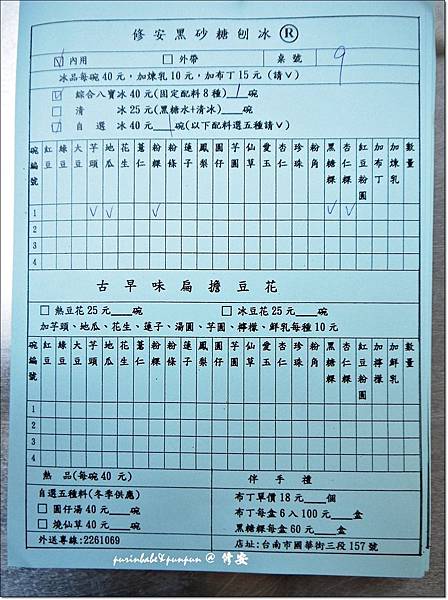 修安黑砂糖刨冰®
☑內用 □外帶 桌號 9
冰品每碗40元，加煉乳10元，加布丁15元（請∨）
☑ 綜合八寶冰40元(固定配料8種) 1 碗
□ 清 冰25元(黑糖水+清冰)____碗
☑ 自 選 冰40元 1 碗(以下配料選五種請∨)
碗編號 紅豆 綠豆 大豆 芋頭 地瓜 花生 薏仁 粉粿 粉條 蓮子 鳳梨 圓仔 芋圓 仙草 愛玉 杏仁 珍珠 粉角 黑糖粿 杏仁粿 紅豆粉圓 加布丁 加煉乳 數量
1 ∨ ∨ ∨ ∨ ∨
2
3
4
古早味扁擔豆花
□熱豆花25元____碗 □冰豆花25元____碗
加芋頭、地瓜、花生、蓮子、湯圓、芋圓、檸檬、鮮乳每種10元
碗編號 紅豆 綠豆 大豆 芋頭 地瓜 花生 薏仁 粉粿 粉條 蓮子 鳳梨 圓仔 芋圓 仙草 愛玉 杏仁 珍珠 粉角 黑糖粿 杏仁粿 紅豆粉圓 加檸檬 加鮮乳 數量
1
2
3
4
熱 品(每碗40 元)
自選五種料(冬季供應)
□圓仔湯40元____碗
□燒仙草40元____碗
外送專線:2261069
伴 手 禮
布丁單價18元____個
布丁每盒6入100元____盒
黑糖粿每盒60元____盒
店址:台南市國華街三段157號
purinbabe&punpun @ 修安